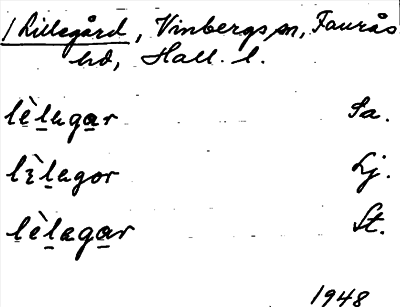 / Lillegård, Vinbergs sn, Faurås
hd, Hall. l.
lèlagar Sa.
lìlagor Lj.
lèlagar St.
1948